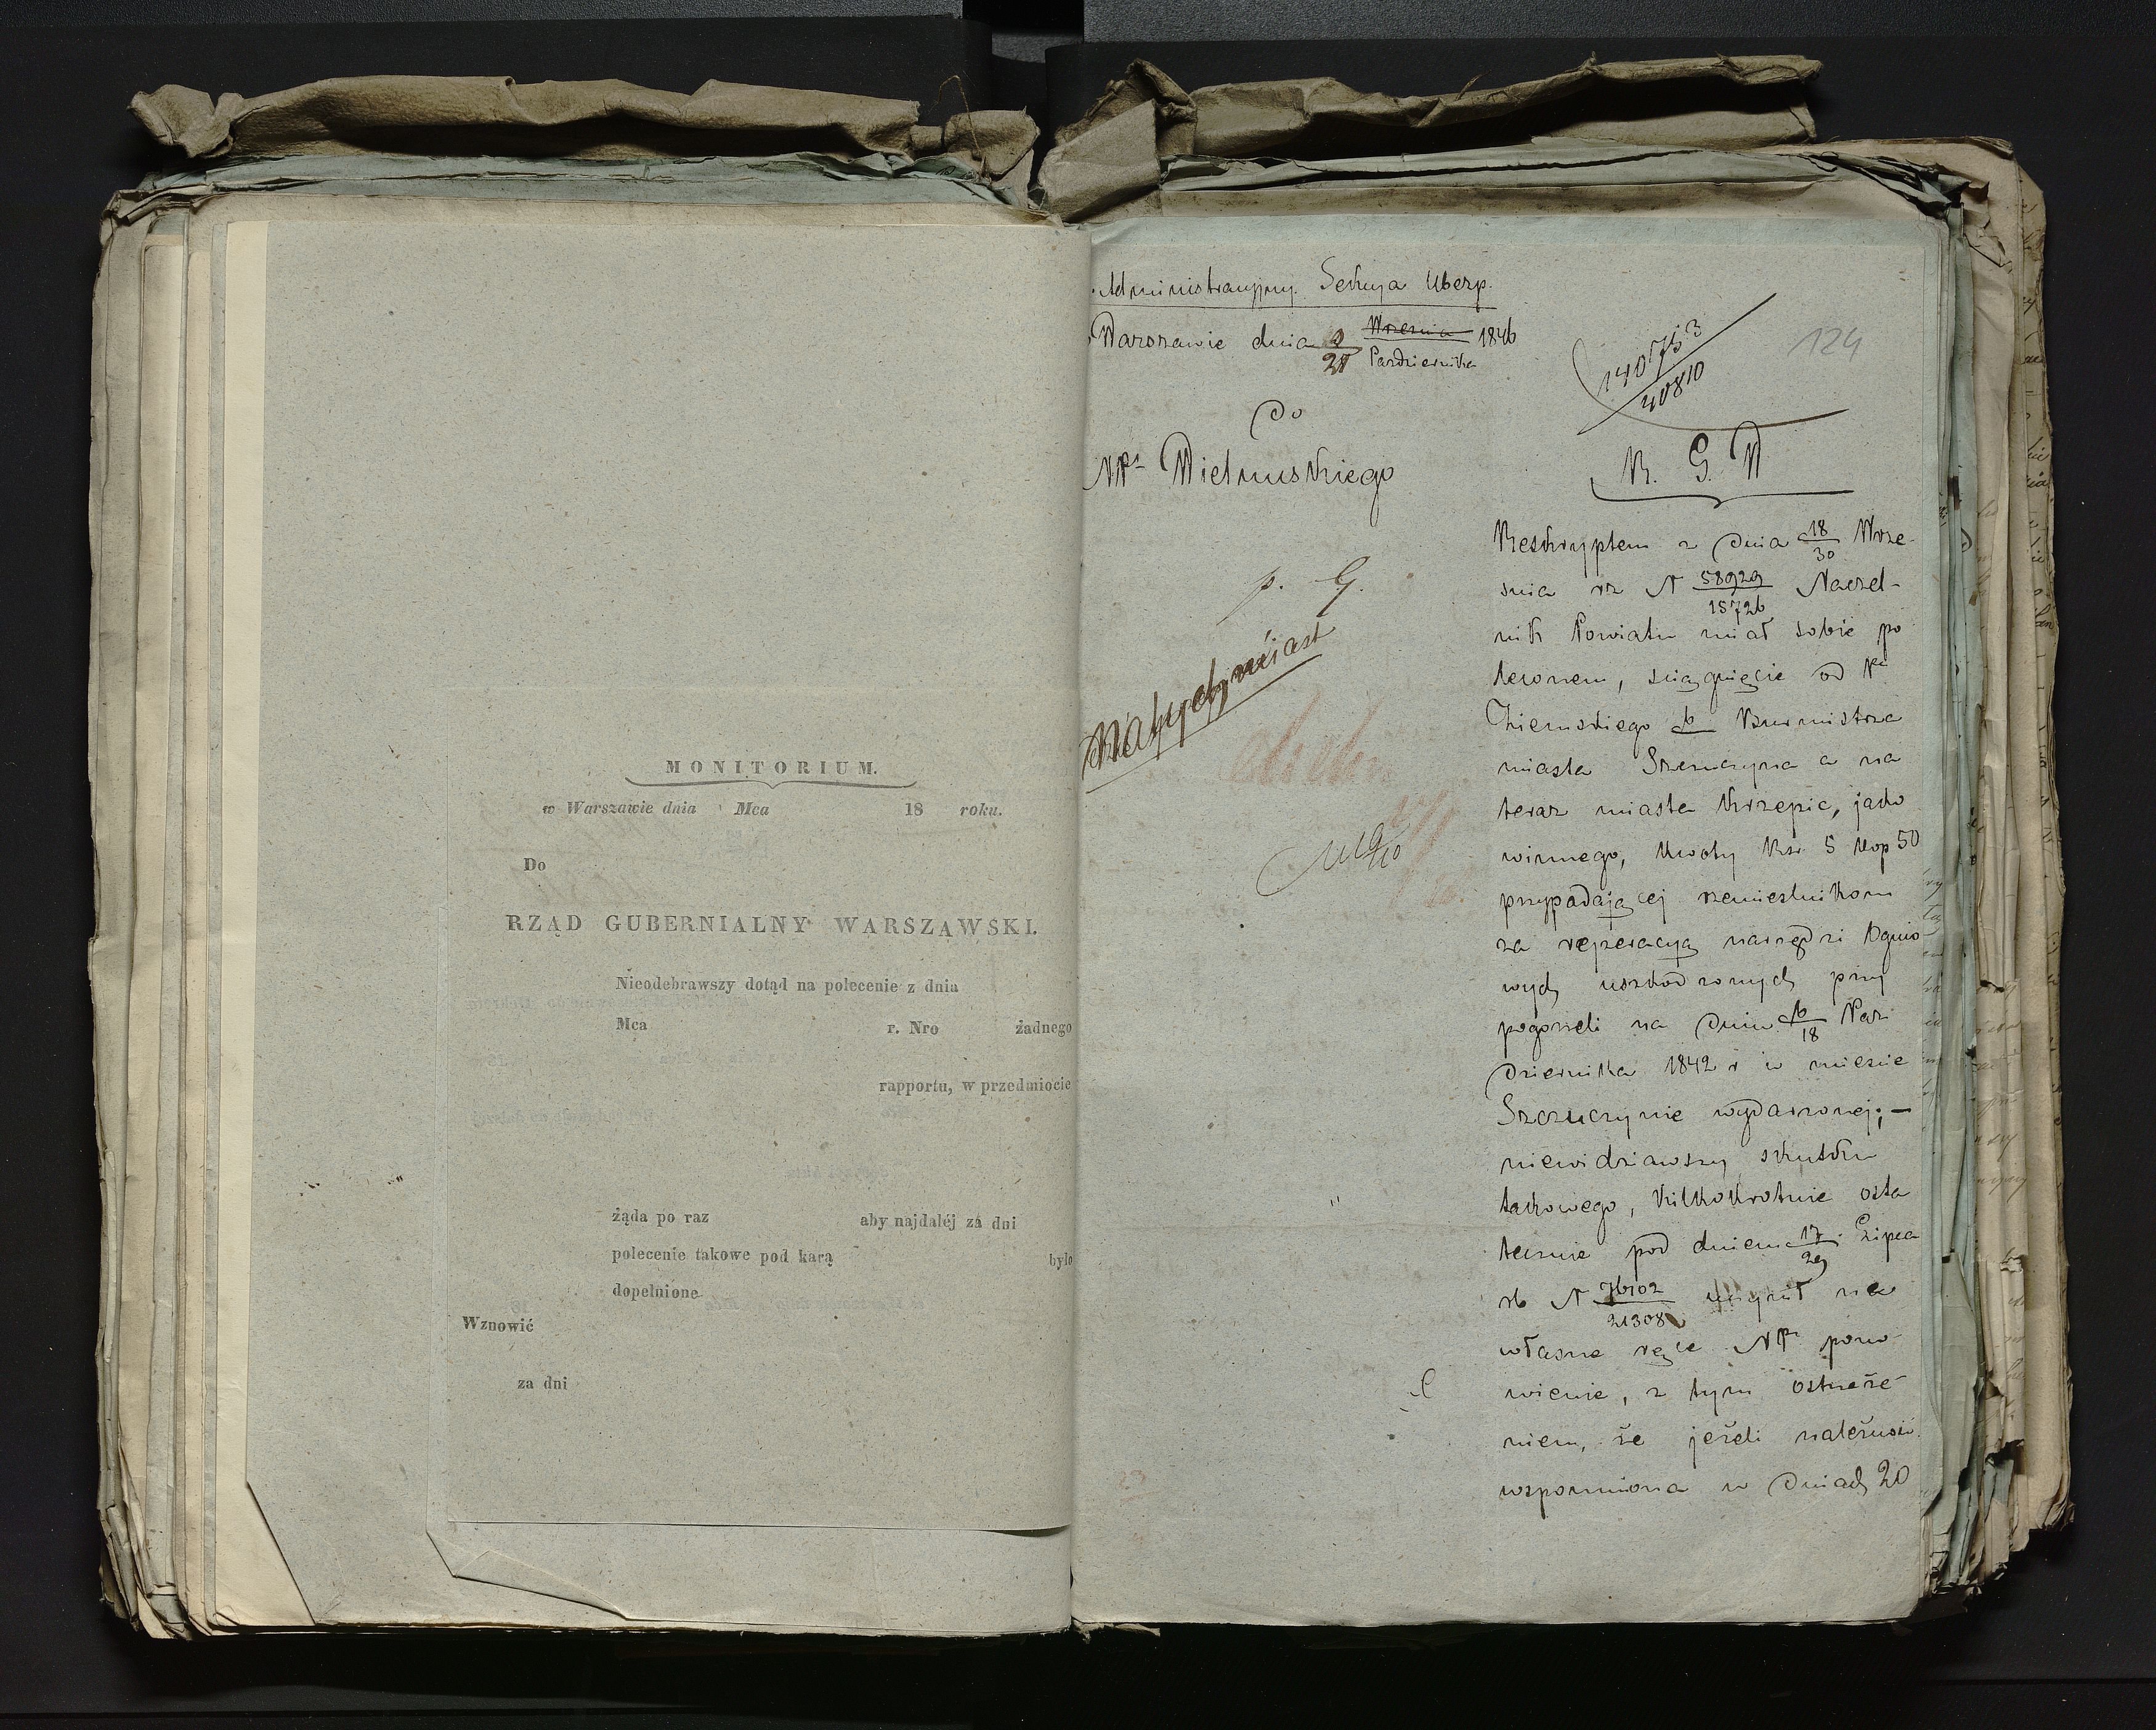 MONITORIUM.
w Warszawie dnia Mca 18 roku.
Do
RZĄD GUBERNIALNY WARSZAWSKI.
Nieodebrawszy dotąd na polecenie z dnia
Mca r. Nro żadnego
rapportu, w przedmiocie
żąda po raz aby najdaléj za dni
polecenie takowe pod karą było
dopełnione
Wznowić
za dni
Administracyjny. Sekcya Ubezp.
Warszawie dnia 21 Września 1846
Października
Do
NPu Wieluńskiego
p. G.
Natychmiast
140753
40810
124
R. G. W
Reskryptem z dnia 18/30 Wrze-
śnia rz N 58929/15726 Naczel-
nik Powiatu miał sobie po
leconem, ściągnięcie od Pa
Ziemskiego b Burmistrza
miasta Szczuczyna a na
teraz miasta Krzepic, jako
winnego, kwoty Rsr 5 kop 50
przypadającej rzemieslnikom
za reperacyą narzędzi Ognio
wych uszkodzonych przy
pogorzeli na dniu 6/18 Paź
dziernika 1842 r w mieście
Szczuczynie wydarzonej; —
niewidziawszy skutku
takowego, kilkokrotnie osta
tecznie pod dniem 17/29 Lipca
rb N 76102/21308 uczynił na
własne ręce NPu pono-
wienie, z tym ostrzeże-
niem, że jeżeli należność
wspomniona w dniach 20